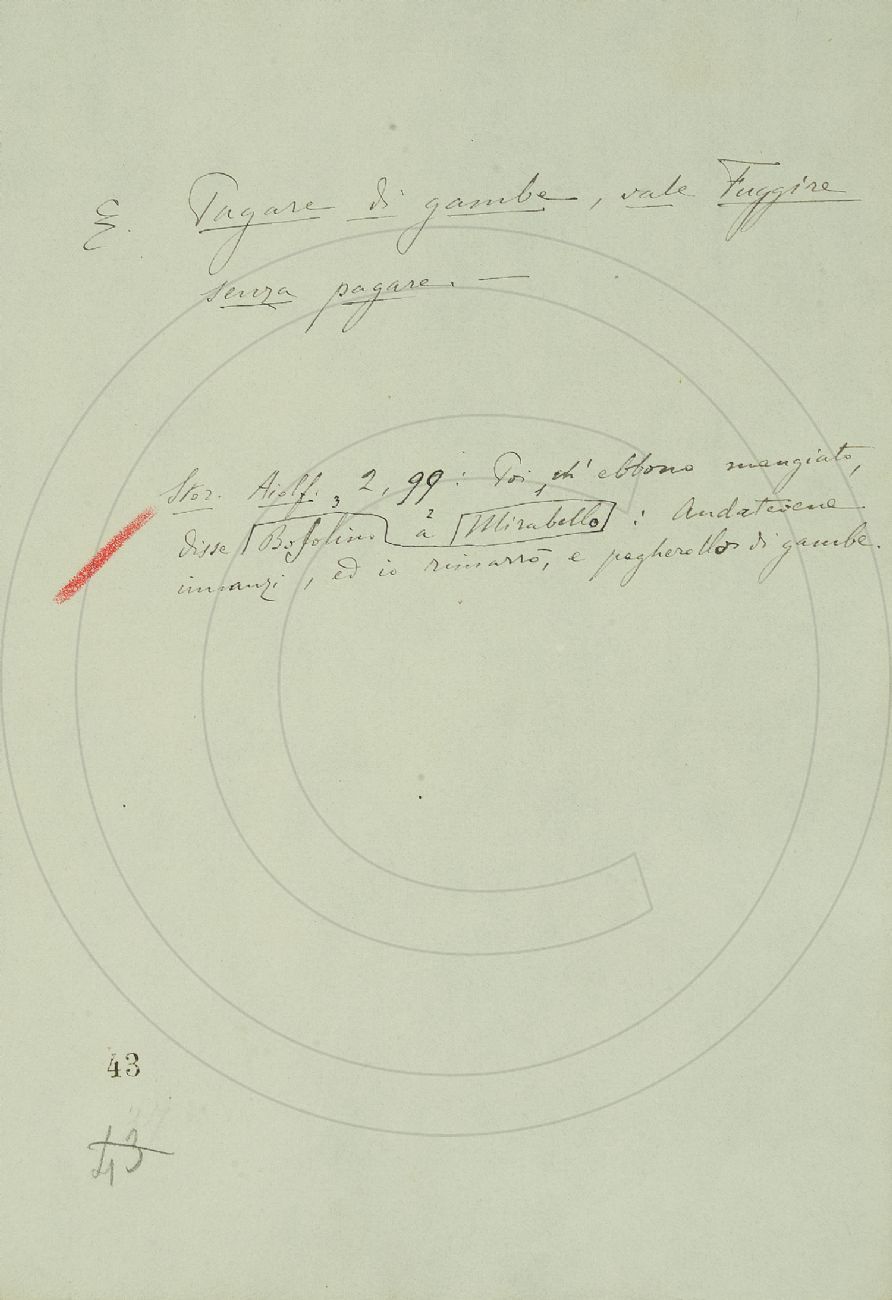 E. Pagare di gambe, vale Fuggire
senza pagare. —
Stor. Aiolf. 2, 99: Poi, ch' ebbono mangiato,
disse Bosolino a Mirabello: Andatevene
innanzi, ed io rimarrò, e pagherollo di gambe.
43
43